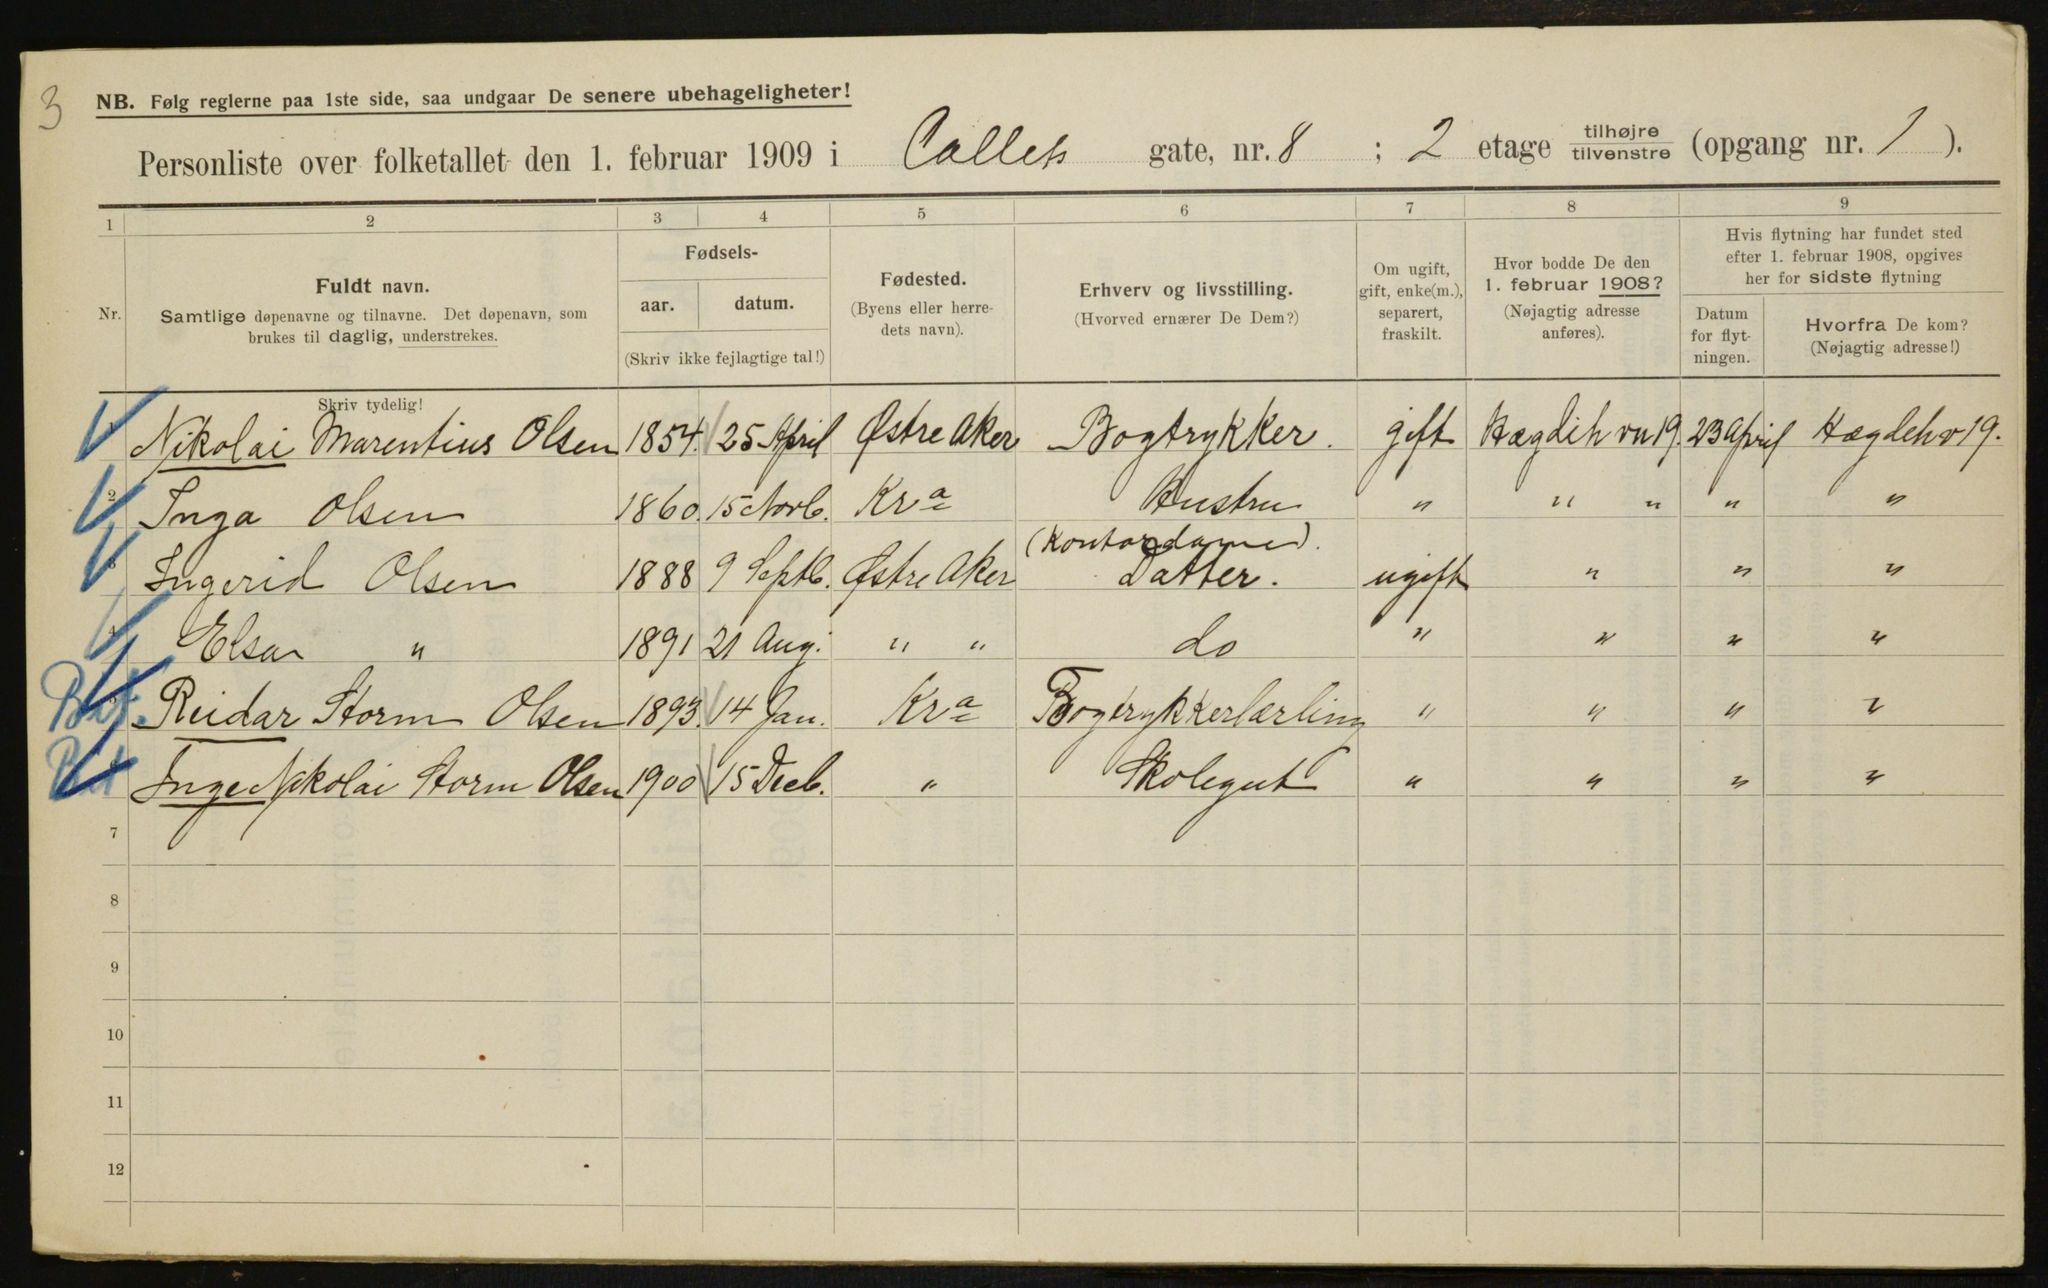 3
NB. Følg reglerne paa 1ste side, saa undgaar De senere ubehageligheter!
Personliste over folketallet den 1. februar 1909 i Collets gate, nr. 8 ; 2 etage tilhøjre / tilvenstre (opgang nr. 1 ).
1 2 3 4 5 6 7 8 9
Nr.
Fuldt navn.
Samtlige døpenavne og tilnavne. Det døpenavn, som
brukes til daglig, understrekes.
Skriv tydelig!
Fødsels-
aar. datum.
(Skriv ikke fejlagtige tal!)
Fødested.
(Byens eller herre-
dets navn).
Erhverv og livsstilling.
(Hvorved ernærer De Dem?)
Om ugift,
gift, enke(m.),
separert,
fraskilt.
Hvor bodde De den
1. februar 1908?
(Nøjagtig adresse
anføres).
Hvis flytning har fundet sted
efter 1. februar 1908, opgives
her for sidste flytning
Datum
for flyt-
ningen.
Hvorfra De kom?
(Nøjagtig adresse!)
Nikolai Marentius Olsen 1854. 25 April Østre Aker Bogtrykker. gift Hægdeh vn 19. 23 April Hægdeh v 19.
2 Inga Olsen 1860. 15 Novb. Kra Hustru " " " " "
(Kontordame).
3 Ingerid Olsen 1888 9 Septb. Østre Aker Datter. ugift " " "
4 Elsa " 1891 21 Aug. " " do " " " "
5 Reidar Storm Olsen 1893. 14 Jan. Kra Bogtrykkerlærling " " " "
Inge Nikolai Storm Olsen 1900 15 Decb. " Skolegut " " " "
7
8
9
10
11
12